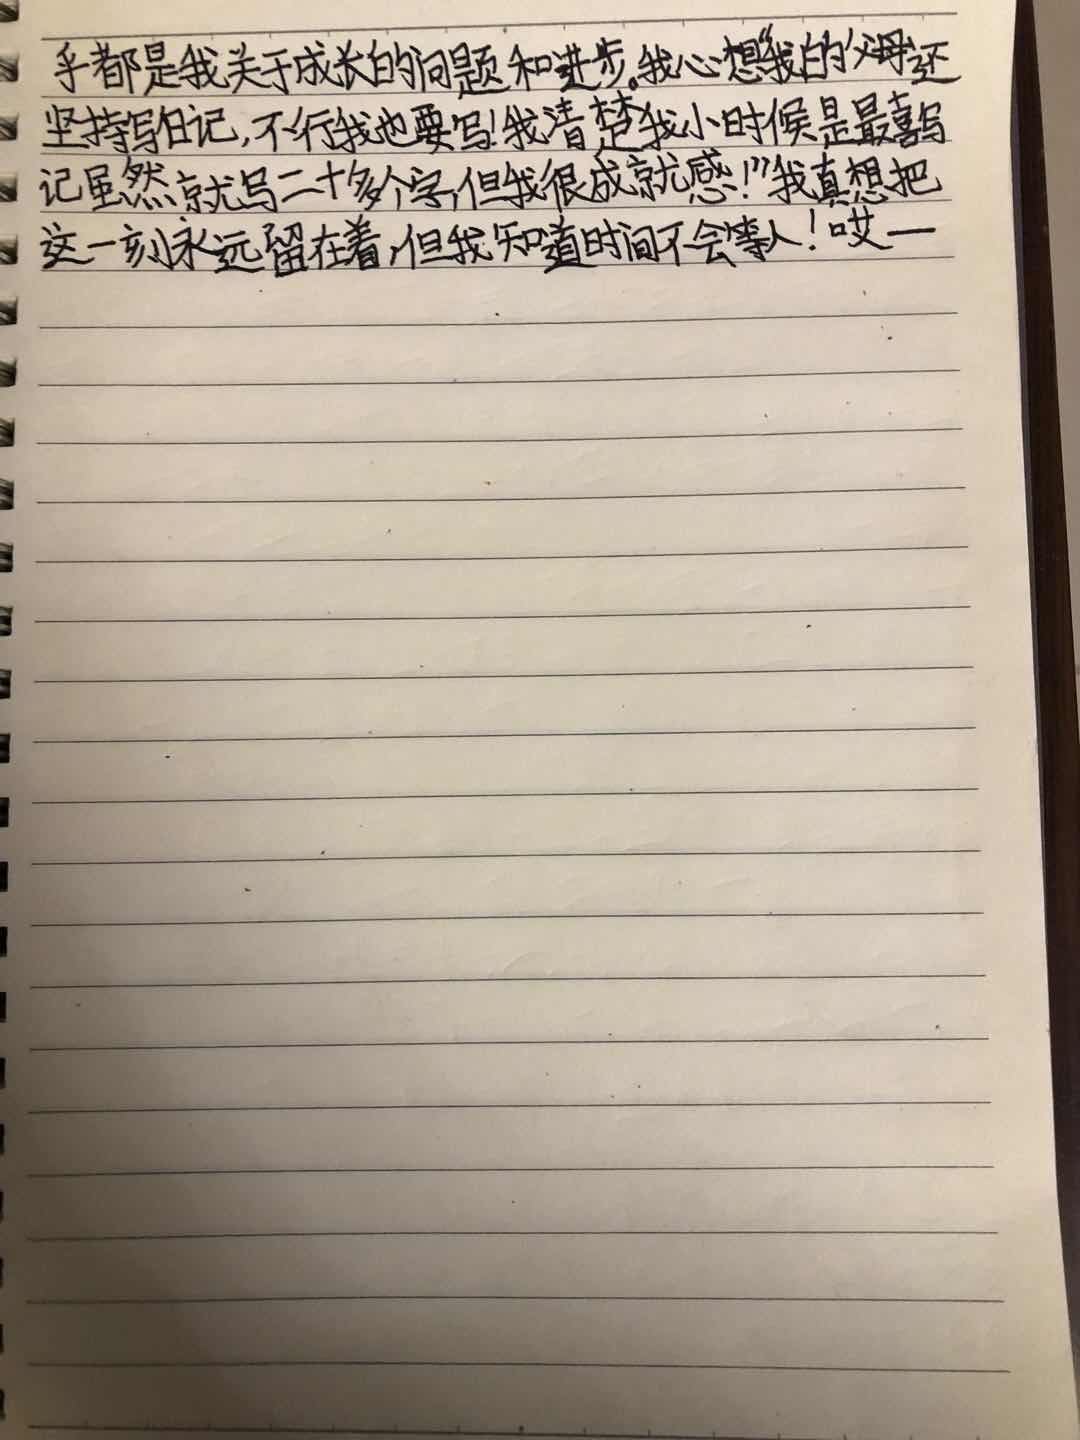 乎都是我关于成长的问题和进步。我心想“我的父母还
坚持写日记,不行我也要写!我清楚我小时候是最喜写
记虽然就写二十多个字,但我很成就感!”我真想把
这一刻永远留在着,但我知道时间不会等人!哎一